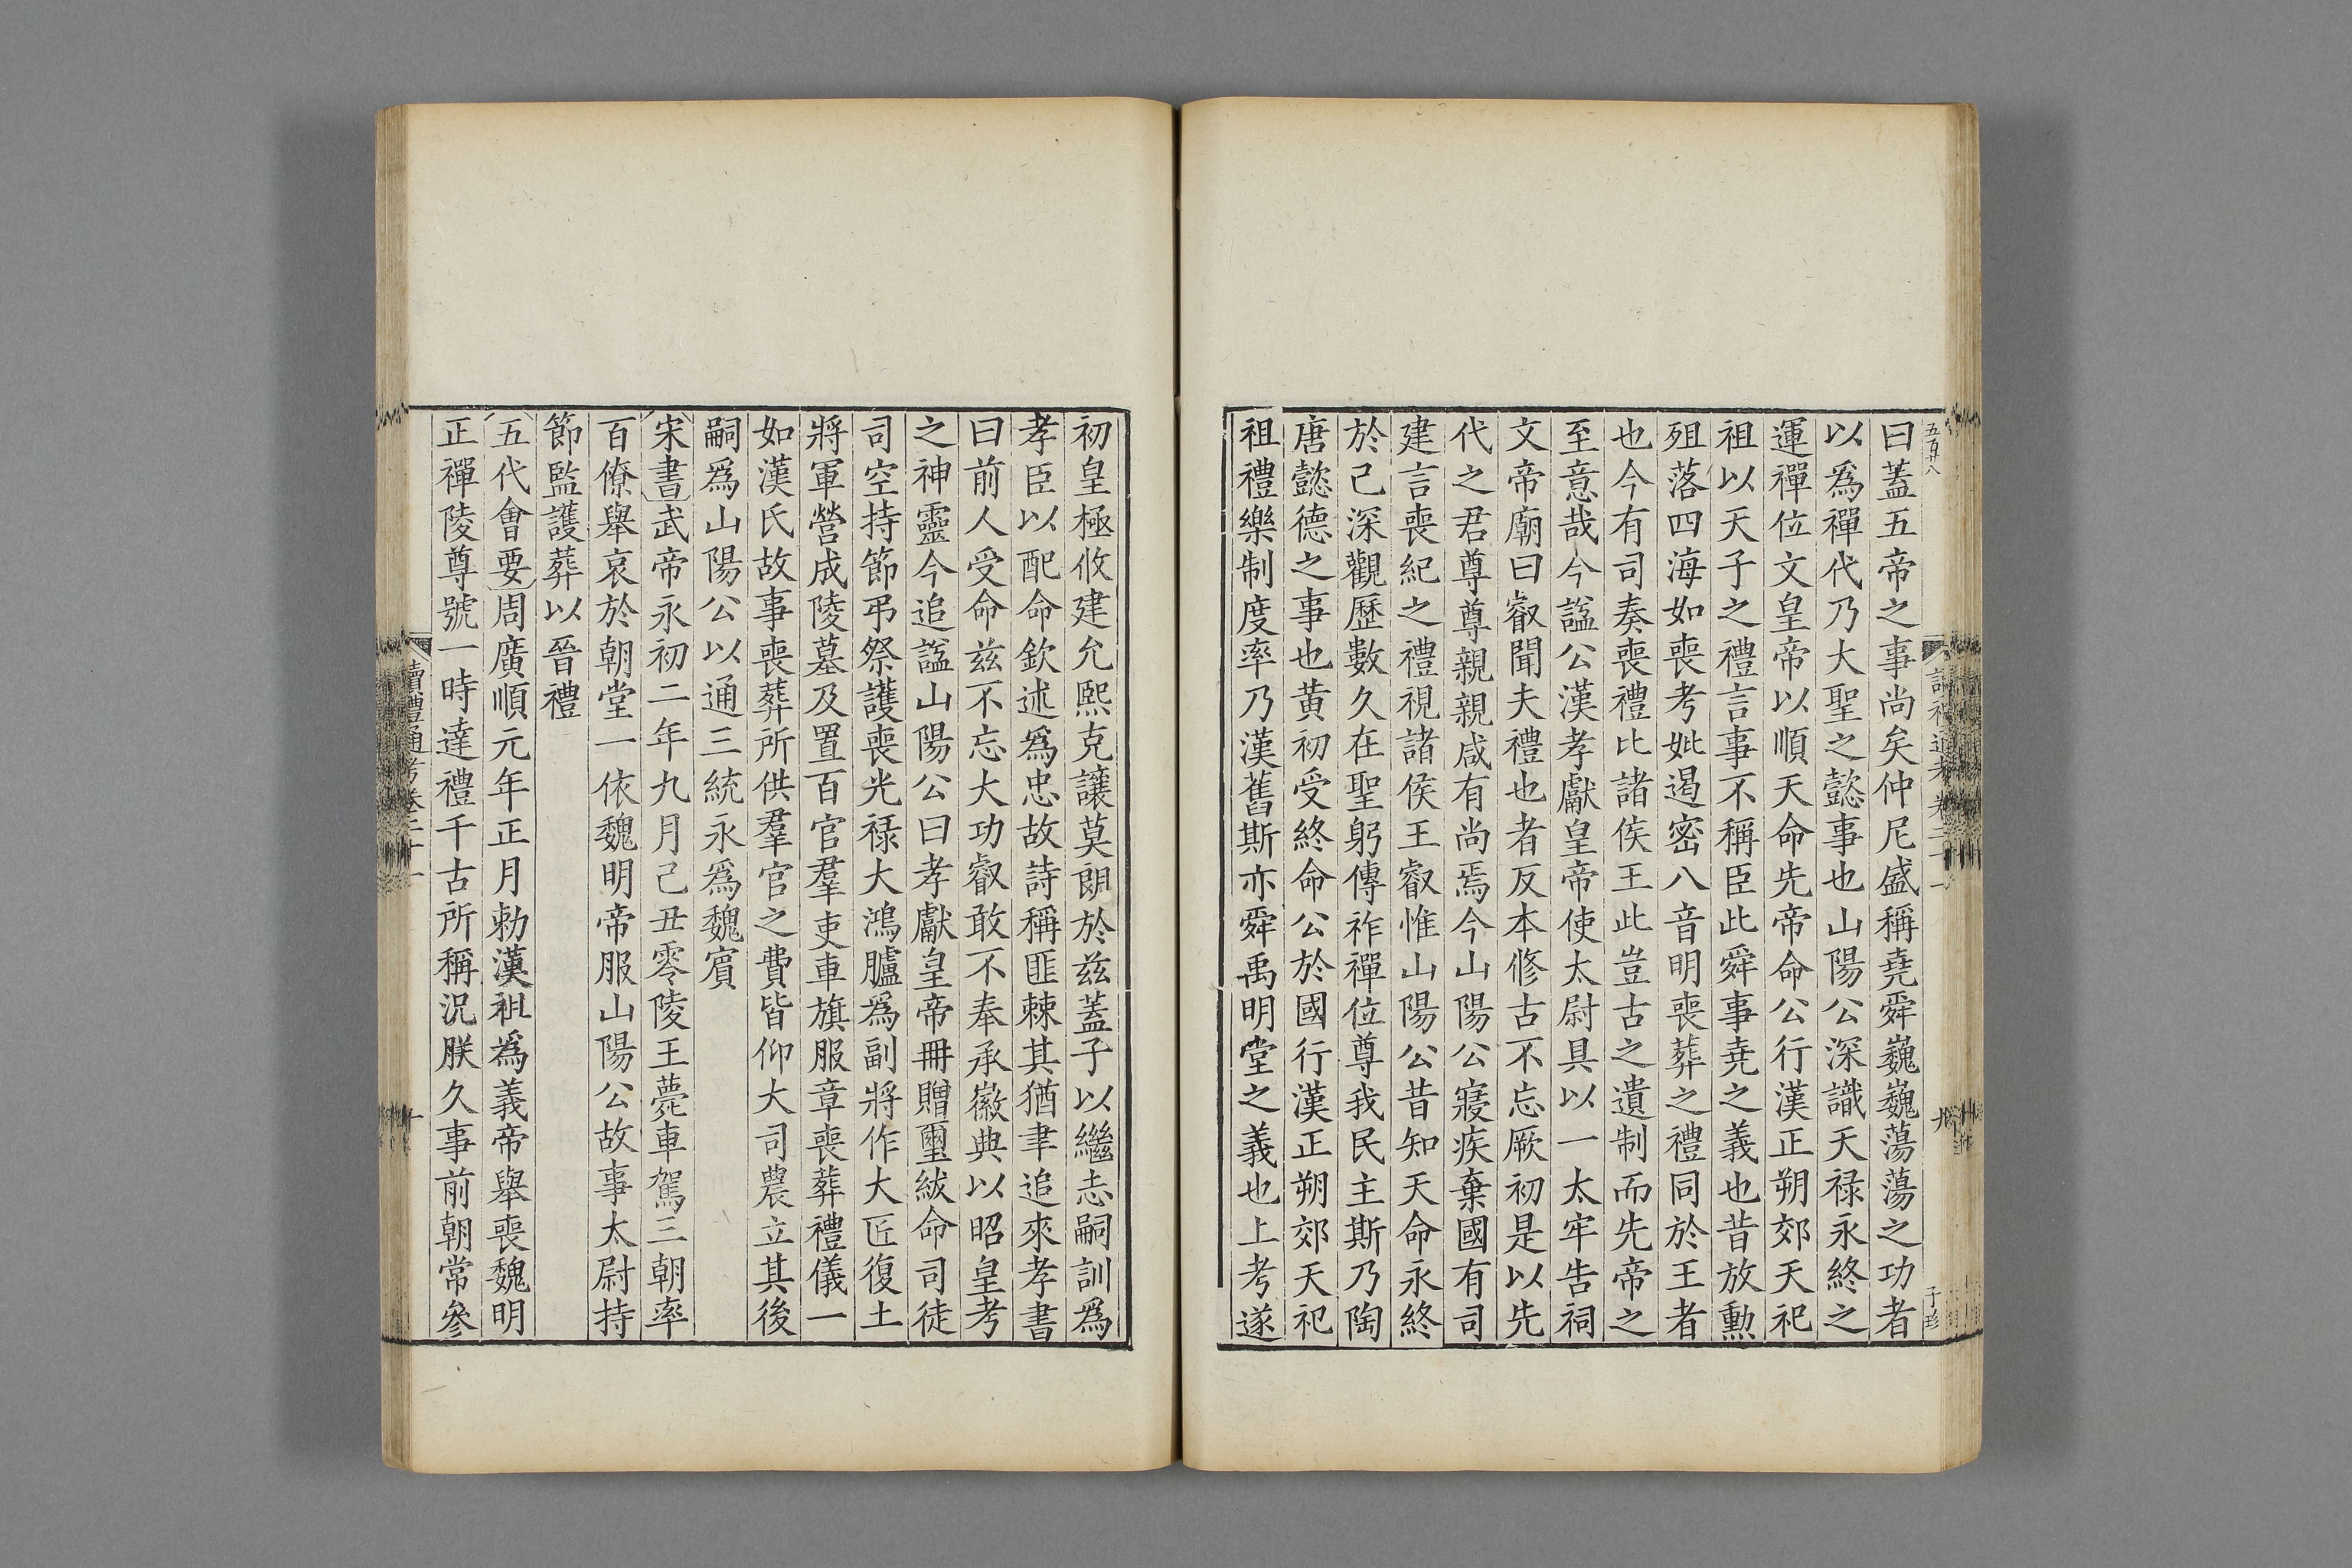 五百廿八
曰蓋五帝之事尚矣仲尼盛稱堯舜巍巍蕩蕩之功者
以爲禪代乃大聖之懿事也山陽公深識天禄永終之
運禪位文皇帝以順天命先帝命公行漢正朔郊天祀
祖以天子之禮言事不稱臣此舜事堯之義也昔放勳
殂落四海如喪考妣遏密八音明喪葬之禮同於王者
也今有司奏喪禮比諸侯王此豈古之遺制而先帝之
至意哉今諡公漢孝獻皇帝使太尉具以一太牢告祠
文帝廟曰叡聞夫禮也者反本修古不忘厥初是以先
代之君尊尊親親咸有尚焉今山陽公寢疾棄國有司
建言喪紀之禮視諸侯王叡惟山陽公昔知天命永終
於己深觀歷數久在聖躬傳祚禪位尊我民主斯乃陶
唐懿德之事也黄初受終命公於國行漢正朔郊天祀
祖禮樂制度率乃漢舊斯亦舜禹明堂之義也上考遂
初皇極攸建允熙克讓莫朗於兹蓋子以繼志嗣訓爲
孝臣以配命欽述爲忠故詩稱匪棘其猶聿追來孝書
曰前人受命兹不忘大功叡敢不奉承徽典以昭皇考
之神靈今追諡山陽公曰孝獻皇帝冊贈璽紱命司徒
司空持節弔祭護喪光禄大鴻臚爲副將作大匠復土
將軍營成陵墓及置百官羣吏車旗服章喪葬禮儀一
如漢氏故事喪葬所供羣官之費皆仰大司農立其後
嗣爲山陽公以通三統永爲魏賓
宋書武帝永初二年九月己丑零陵王薨車駕三朝率
百僚舉哀於朝堂一依魏明帝服山陽公故事太尉持
節監護葬以晉禮
五代會要周廣順元年正月勅漢祖為義帝舉喪魏明
正禪陵尊號一時達禮千古所稱況朕久事前朝常參
讀禮通考卷二十一
十